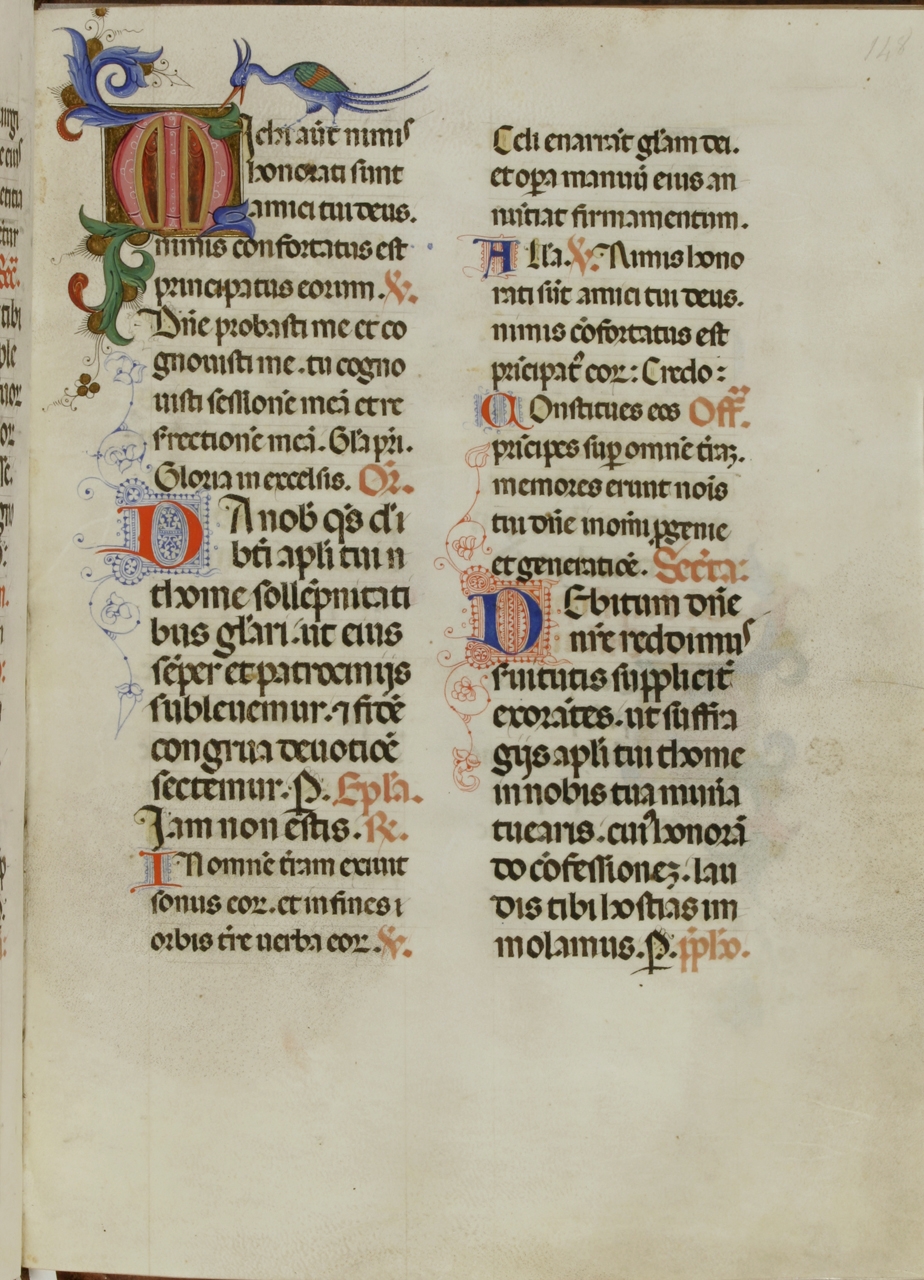 Michi aūt nimis
honorati sunt
amici tui deus.
nimis confortatus est
principatus eorum. V.
Dn̄e probasti me et co
gnouisti me. tu cogno
uisti sessionē meā et re
s̄rectionē meā. Gl̄a pr̄i.
Gloria in excelsis. Or̄.
DA nob̄ q̄s d's i
bt̄i apl̄i tui n
thome sollēpnitati
bus gl̄ari. ut eius
sēper et patrocinijs
subleuemur. ⁊ fidē
congrua deuotiōē
sectemur. P. Epl̄a.
Jam non estis. R.
IN omnē t̄ram exiuit
sonus eoꝝ. et in fines
orbis t̄re uerba eoꝝ. V.
Celi enarrāt gl̄am dei.
et oꝑa manuū eius an
nūtiat firmamentum.
All̄a. V. Nimis hono
rati sūt amici tui deus.
nimis cōfortatus est
prīcipat᷒ eoꝝ: Credo:
COnstitues eos Off̄.
prīcipes suꝑ omnē t̄raꝫ.
memores erunt nois̄
tui dn̄e in om̄i ꝓgenie
et generatiōē. Secr̄ta:
DEbitum dn̄e
nr̄e reddimus
s̄uitutis suppliciť
exorātes. ut suffra
gijs apl̄i tui thome
in nobis tua mun̄a
tuearis. cui᷒ honorā
do cōfessioneꝫ. lau
dis tibi hostias im
molamus. P. p̄pħo.
148